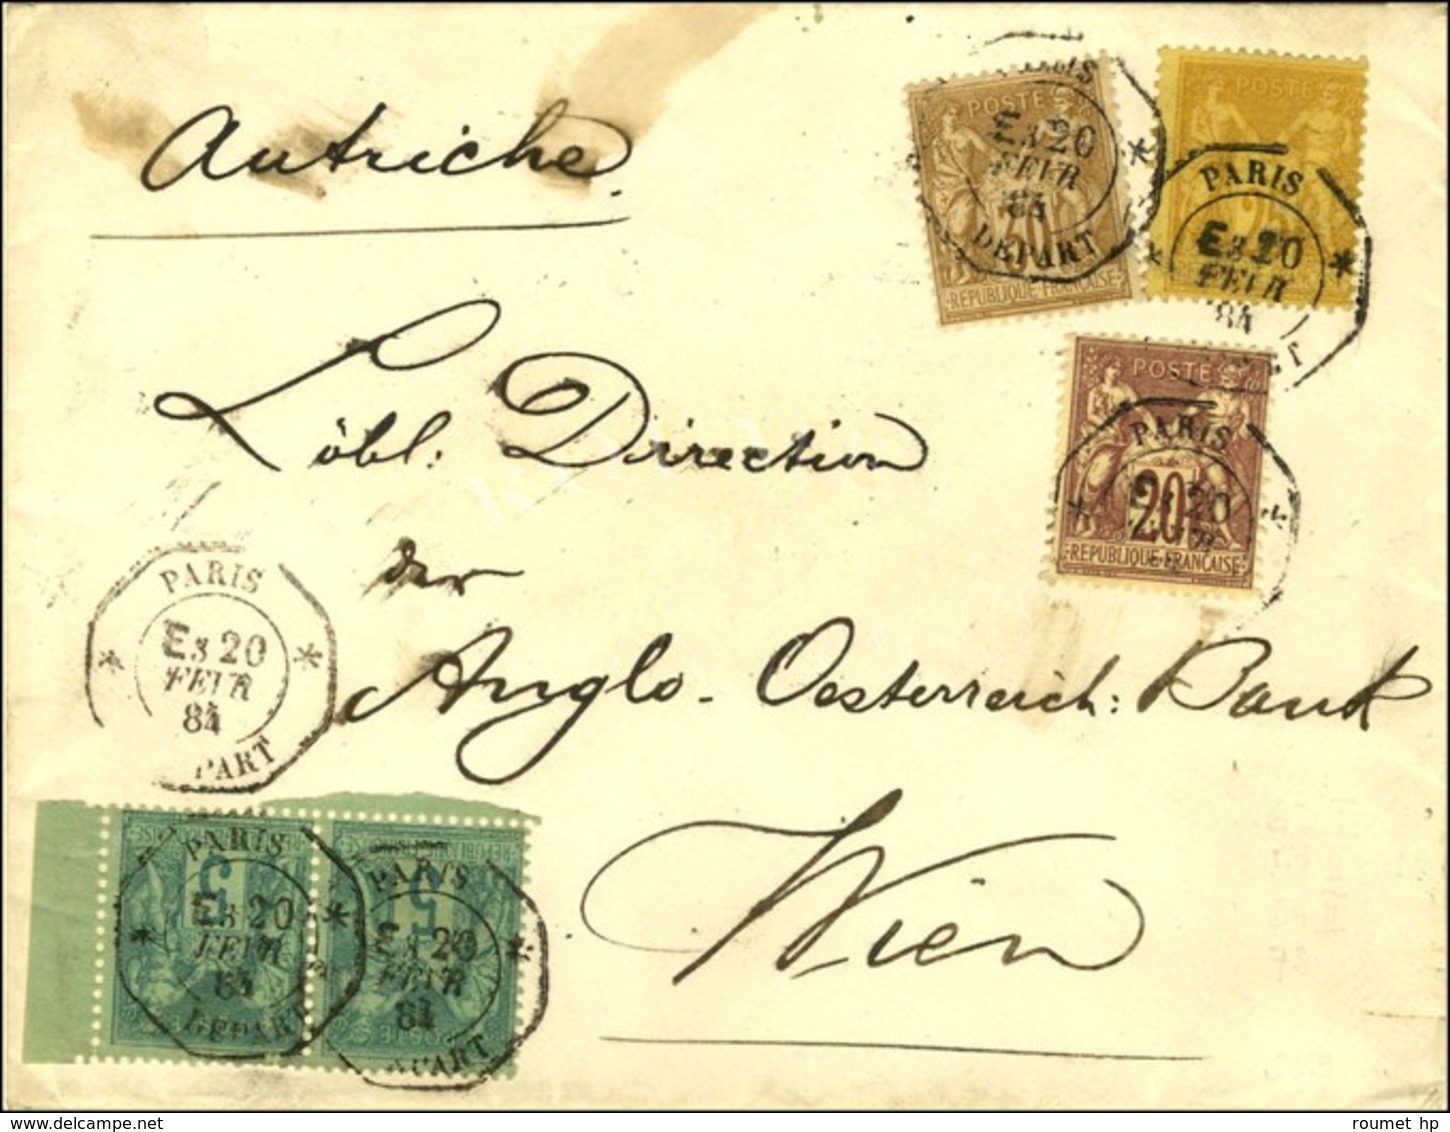 Autriche.
POSTE
30
REPUBLIQUE FRANÇAISE
PARIS
E3 20
FEVR
84
DEPART
POSTE
25
PARIS
E3 20
FEVR
84
Löbl. Direction
POSTE
20
REPUBLIQUE FRANÇAISE
PARIS
E3 20
der
PARIS
E3 20
FEVR
84
PART
Anglo-Oesterreich: Bank
Wien
5
PARIS
E3 20
FEVR
84
DEPART
5
PARIS
E3 20
FEVR
84
PART
roumet hp